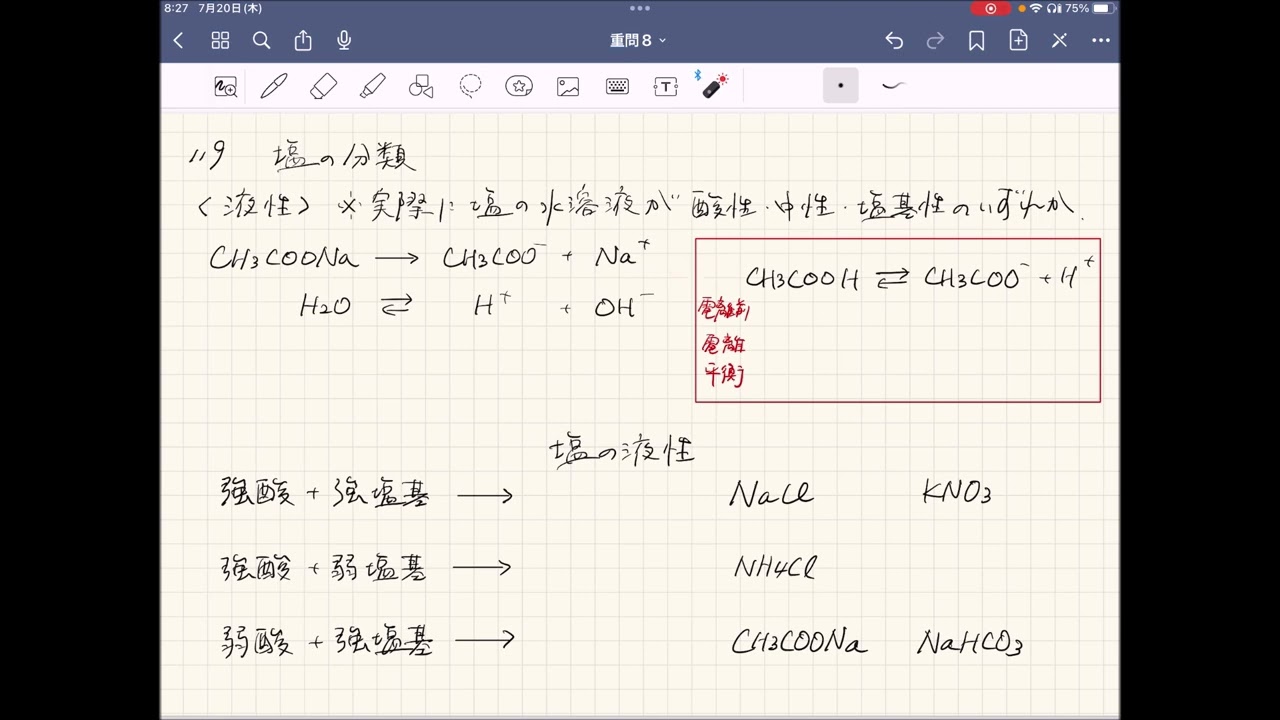 8:27 7月20日(木)
75%
重問8
119 塩の分類
<液性> ※実際に塩の水溶液が酸性・中性・塩基性のいずれか.
CH3COONa → CH3COO⁻ + Na⁺
H2O ⇄ H⁺ + OH⁻
CH3COOH ⇄ CH3COO⁻ + H⁺
電離前
電離
平衡
塩の液性
強酸 + 強塩基 → NaCl KNO3
強酸 + 弱塩基 → NH4Cl
弱酸 + 強塩基 → CH3COONa NaHCO3